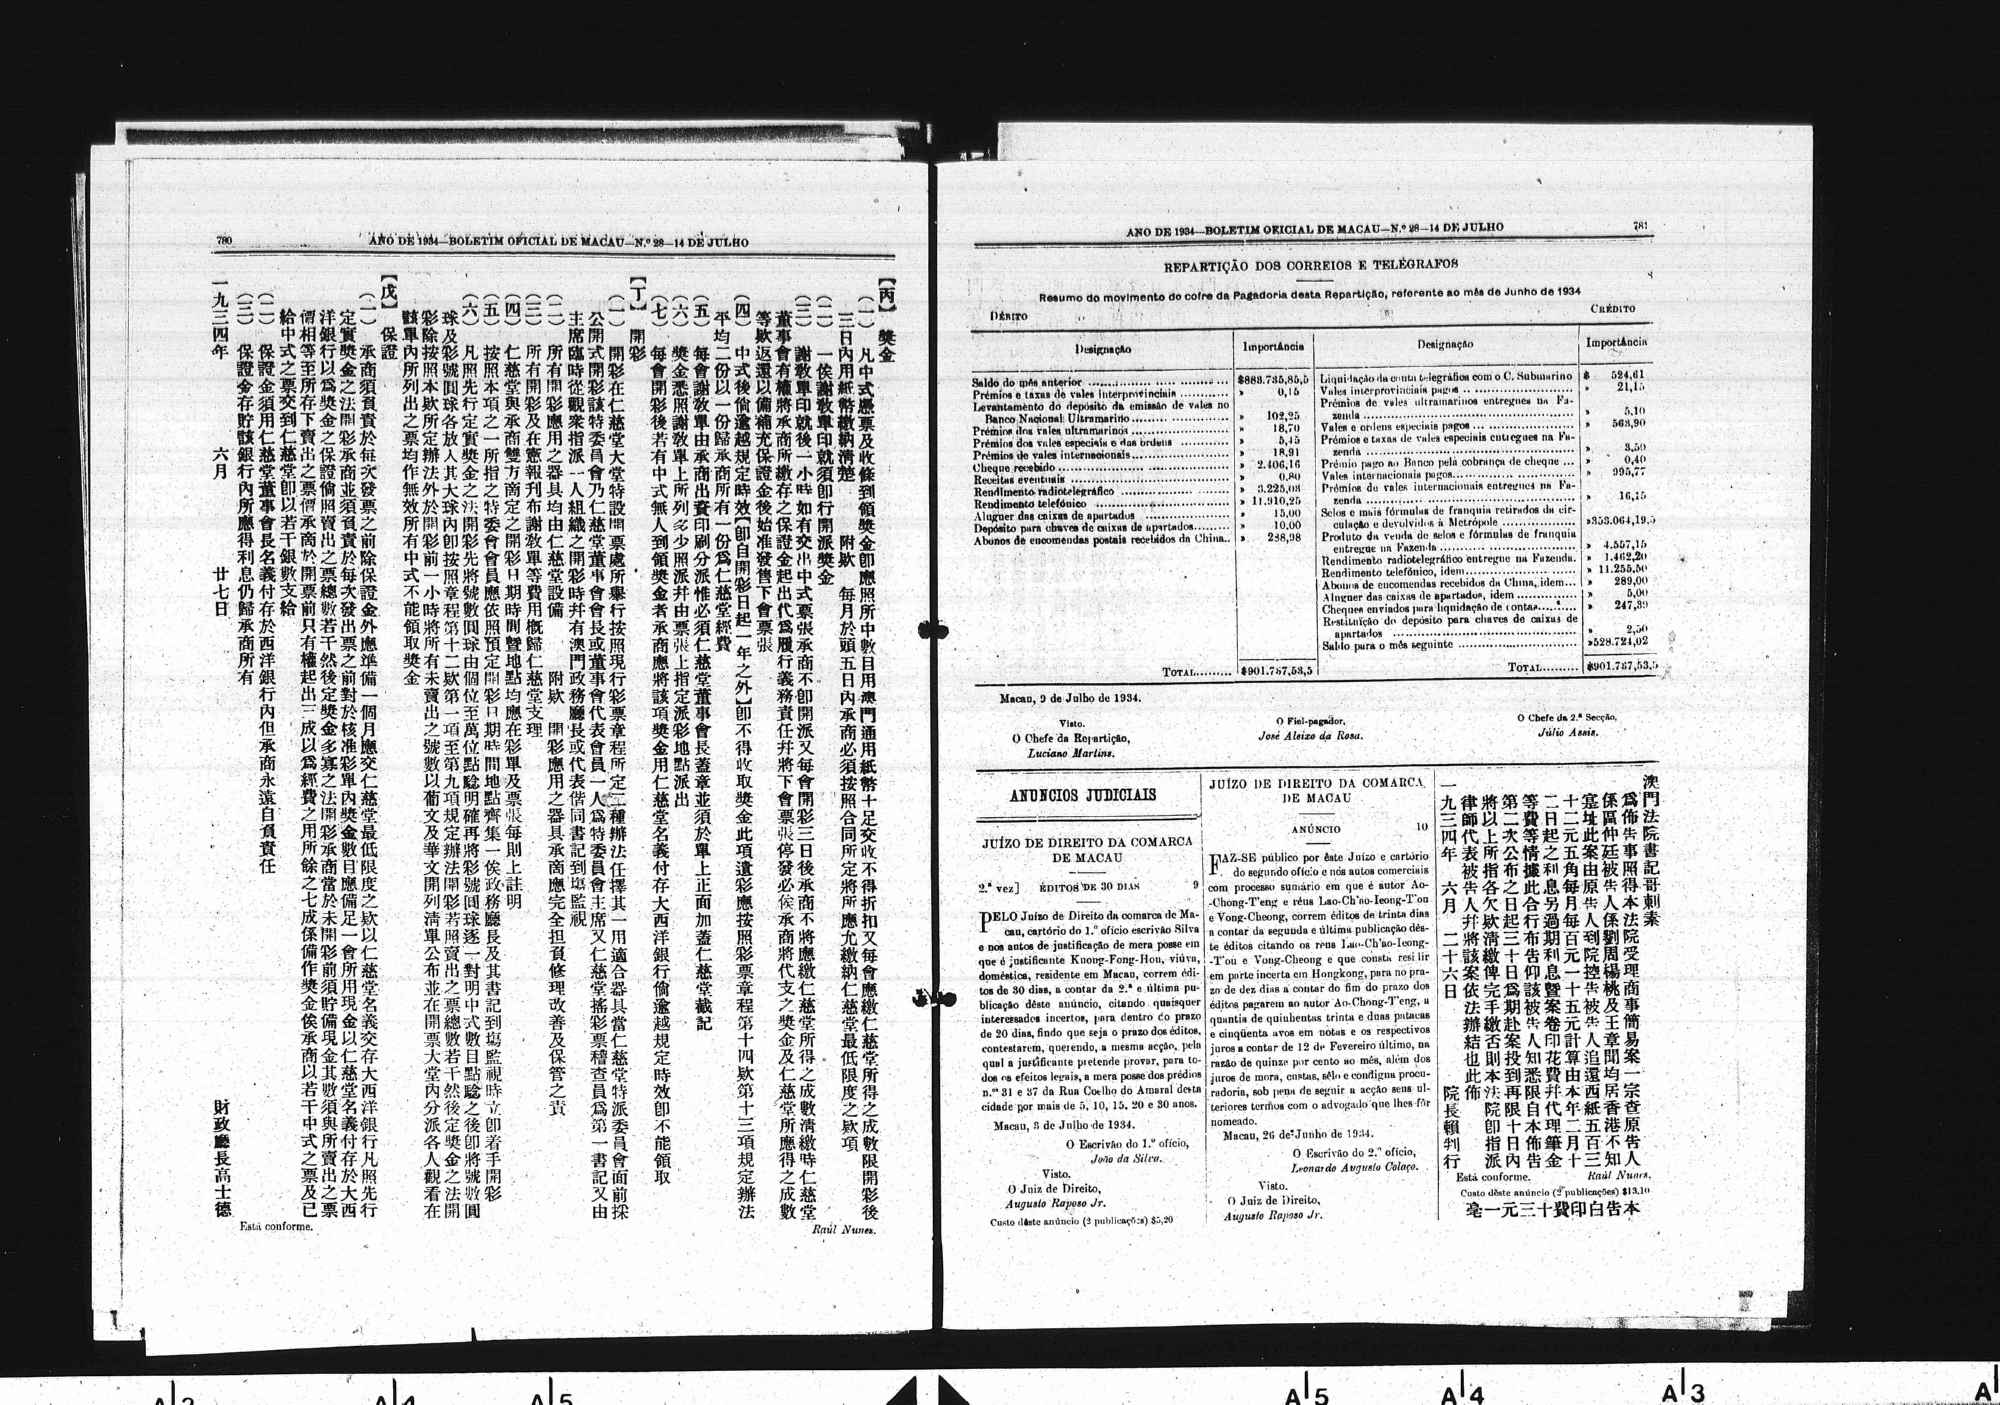 780
ANO DE 1934—BOLETIM OFICIAL DE MACAU—N.º 28—14 DE JULHO
【丙】 獎金
（一） 凡中式憑票及收條到領獎金卽應照所中數目用澳門通用紙幣十足交收不得折扣又每會應繳仁慈堂所得之成數限開彩後
三日內用紙幣繳納清楚 附欵 每月於頭五日內承商必須按照合同所定將所應允繳納仁慈堂最低限度之欵項
（二） 一俟謝敎單印就須卽行開派獎金
（三） 謝敎單印就後一小時如有交出中式票張承商不卽開派又每會開彩三日後承商不將應繳仁慈堂所得之成數清繳時仁慈堂
董事會有權將承商所繳存之保證金起出代爲履行義務責任幷將下會票張停發必俟承商將代支之獎金及仁慈堂所應得之成數
等欵返還以備補充保證金後始准發售下會票張
（四） 中式後倘逾越規定時效【卽自開彩日起一年之外】卽不得收取獎金此項遺彩應按照彩票章程第十四欵第十三項規定辦法
平均二份以一份歸承商所有一份爲仁慈堂經費
（五） 每會謝敎單由承商出資印刷分派惟必須仁慈堂董事會長蓋章並須於單上正面加蓋仁慈堂戳記
（六） 獎金悉照謝敎單上所列多少照派幷由票張上指定派彩地點派出
（七） 每會開彩後若有中式無人到領獎金者承商應將該項獎金用仁慈堂名義付存大西洋銀行倘逾越規定時效卽不能領取
【丁】 開彩
（一） 開彩在仁慈堂大堂特設開票處所舉行按照現行彩票章程所定二種辦法任擇其一用適合器具當仁慈堂特派委員會面前採
公開式開彩該特委員會乃仁慈堂董事會會長或董事會代表會員一人爲特委員會主席又仁慈堂搖彩票稽查員爲第一書記又由
主席臨時從觀衆指派一人組織之開彩時幷有澳門政務廳長或代表偕同書記到塲監視
（二） 所有開彩應用之器具均由仁慈堂設備 附欵 開彩應用之器具承商應完全担負修理改善及保管之責
（三） 所有開彩及在憲報刊布謝敎單等費用槪歸仁慈堂支理
（四） 仁慈堂與承商雙方商定之開彩日期時間曁地點均應在彩單及票張每則上註明
（五） 按照本項之一所指之特委會會員應依照預定開彩日期時間地點齊集一俟政務廳長及其書記到塲監視時立卽着手開彩
（六） 凡照先行定實獎金之法開彩先將號數圓球由個位至萬位點騐明確再將彩號圓球逐一對明中式數目點騐之後卽將號數圓
球及彩號圓球各放入其大球內卽按照章程第十二欵第一項至第九項規定辦法開彩若照賣出之票總數若干然後定獎金之法開
彩除按照本欵所定辦法外於開彩前一小時將所有未賣出之號數以葡文及華文開列清單公布並在開票大堂內分派各人觀看在
該單內所列出之票均作無效所有中式不能領取獎金
【戊】 保證
（一） 承商須負責於每次發票之前除保證金外應準備一個月應交仁慈堂最低限度之欵以仁慈堂名義交存大西洋銀行凡照先行
定實獎金之法開彩承商並須負責於每次發出票之前對於核准彩單內獎金數目應備足一會所用現金以仁慈堂名義付存於大西
洋銀行以爲獎金之保證倘照賣出之票總數若干然後定獎金多寡之法開彩承商當於未開彩前須貯備現金其數須與所賣出之票
價相等至所存下賣出之票價承商於開票前只有權起出三成以爲經費之用所餘之七成係備作獎金俟承商以若干中式之票及已
給中式之票交到仁慈堂卽以若干銀數支給
（二） 保證金須用仁慈堂董事會長名義付存於西洋銀行內但承商永遠自負責任
（三） 保證金存貯該銀行內所應得利息仍歸承商所有
一九三四年 六月 廿七日 財政廳長高士德
Está conforme. Raúl Nunes.
ANO DE 1934—BOLETIM OFICIAL DE MACAU—N.º 28—14 DE JULHO
781
REPARTIÇÃO DOS CORREIOS E TELÉGRAFOS
Resumo do movimento do cofre da Pagadoria desta Repartição, referente ao mês de Junho de 1934
DÉBITO
CRÉDITO
Designação Importância Designação Importância
Saldo do mês anterior ........ $883.735,85,5
Prémios e taxas de vales interprovinciais ........ » 0,15
Levantamento do depósito da emissão de vales no
Banco Nacional Ultramarino ........ » 102,25
Prémios dos vales ultramarinos ........ » 18,70
Prémios dos vales especiais e das ordens ........ » 5,45
Prémios de vales internacionais ........ » 18,91
Cheque recebido ........ » 2.406,16
Receitas eventuais ........ » 0,80
Rendimento radiotelegráfico ........ » 3.225,08
Rendimento telefónico ........ » 11.910,25
Aluguer das caixas de apartados ........ » 15,00
Depósito para chaves de caixas de apartados ........ » 10,00
Abonos de encomendas postais recebidos da China.. » 238,98
TOTAL......... $901.787,53,5
Liquidação da conta telegráfica com o C. Submarino $ 524,61
Vales interprovinciais pagos ........ » 21,15
Prémios de vales ultramarinos entregues na Fa-
zenda ........ » 5,10
Vales e ordens especiais pagos ........ » 563,90
Prémios e taxas de vales especiais entregues na Fa-
zenda ........ » 3,50
Prémio pago ao Banco pela cobrança de cheque ... » 0,40
Vales internacionais pagos........ » 995,77
Prémios de vales internacionais entregues na Fa-
zenda ........ » 16,15
Selos e mais fórmulas de franquia retirados da cir-
culação e devolvidos à Metrópole ........ »353.064,19,5
Produto da venda de selos e fórmulas de franquia
entregue na Fazenda ........ » 4.557,15
Rendimento radiotelegráfico entregue na Fazenda. » 1.462,20
Rendimento telefónico, idem ........ » 11.255,50
Abonos de encomendas recebidos da China, idem... » 289,00
Aluguer das caixas de apartados, idem ........ » 5,00
Cheques enviados para liquidação de contas........ » 247,39
Restituição do depósito para chaves de caixas de
apartados ........ » 2,50
Saldo para o mês seguinte ........ »528.724,02
TOTAL......... $901.787,53,5
Macau, 9 de Julho de 1934.
Visto.
O Chefe da Repartição,
Luciano Martins.
O Fiel-pagador,
José Aleixo da Rosa.
O Chefe da 2.ª Secção,
Júlio Assis.
ANÚNCIOS JUDICIAIS
JUÍZO DE DIREITO DA COMARCA
DE MACAU
2.ª vez] ÉDITOS DE 30 DIAS 9
PELO Juízo de Direito da comarca de Ma-
cau, cartório do 1.º ofício escrivão Silva
e nos autos de justificação de mera posse em
que é justificante Kuong-Fong-Hou, viúva,
doméstica, residente em Macau, correm édi-
tos de 30 dias, a contar da 2.ª e última pu-
blicação dêste anúncio, citando quaisquer
interessados incertos, para dentro do prazo
de 20 dias, findo que seja o prazo dos éditos,
contestarem, querendo, a mesma acção, pela
qual a justificante pretende provar, para to-
dos os efeitos legais, a mera posse dos prédios
n.ºs 31 e 37 da Rua Coelho do Amaral desta
cidade por mais de 5, 10, 15, 20 e 30 anos.
Macau, 3 de Julho de 1934.
O Escrivão do 1.º ofício,
João da Silva.
Visto.
O Juiz de Direito,
Augusto Raposo Jr.
Custo dêste anúncio (2 publicações) $5,20
JUÍZO DE DIREITO DA COMARCA
DE MACAU
ANÚNCIO 10
FAZ-SE público por êste Juízo e cartório
do segundo ofício e nós autos comerciais
com processo sumário em que é autor Ao-
-Chong-T'eng e réus Lao-Ch'ao-Ieong-T'ou
e Vong-Cheong, correm éditos de trinta dias
a contar da segunda e última publicação dês-
te éditos citando os réus Lao-Ch'ao-Ieong-
-T'ou e Vong-Cheong e que consta residir
em parte incerta em Hongkong, para no pra-
zo de dez dias a contar do fim do prazo dos
éditos pagarem ao autor Ao-Chong-T'eng, a
quantia de quinhentas trinta e duas patacas
e cinqüenta avos em notas e os respectivos
juros a contar de 12 de Fevereiro último, na
razão de quinze por cento ao mês, além dos
juros de mora, custas, sêlo e condigna procu-
radoria, sob pena de seguir a acção seus ul-
teriores termos com o advogado que lhes fôr
nomeado.
Macau, 26 de Junho de 1934.
O Escrivão do 2.º ofício,
Leonardo Augusto Colaço.
Visto.
O Juiz de Direito,
Augusto Raposo Jr.
澳門法院書記哥刺素
爲佈告事照得本法院受理商事簡易案一宗查原告人
係區仲廷被告人係劉周楊桃及王章聞均居香港不知
寔址此案由原告人到院控告被告人追還西紙五百三
十二元五角每月每百元一十五元計算由本年二月十
二日起之利息另過期利息曁案卷印花費幷代理筆金
等費等情據此合行布告仰該被告人知悉限自本佈告
第二次公布之日起三十日爲期赴案投到再限十日內
將以上所指各欠欵清繳俾完手繳否則本法院卽指派
律師代表被告人幷將該案依法辦結也此佈
一九三四年 六月 二十六日 院長賴判行
Está conforme. Raúl Nunes.
Custo dêste anúncio (2 publicações) $13,10
毫一元三十費印白告本
A 3
A 4
A 5
A 5
A 4
A 3
A